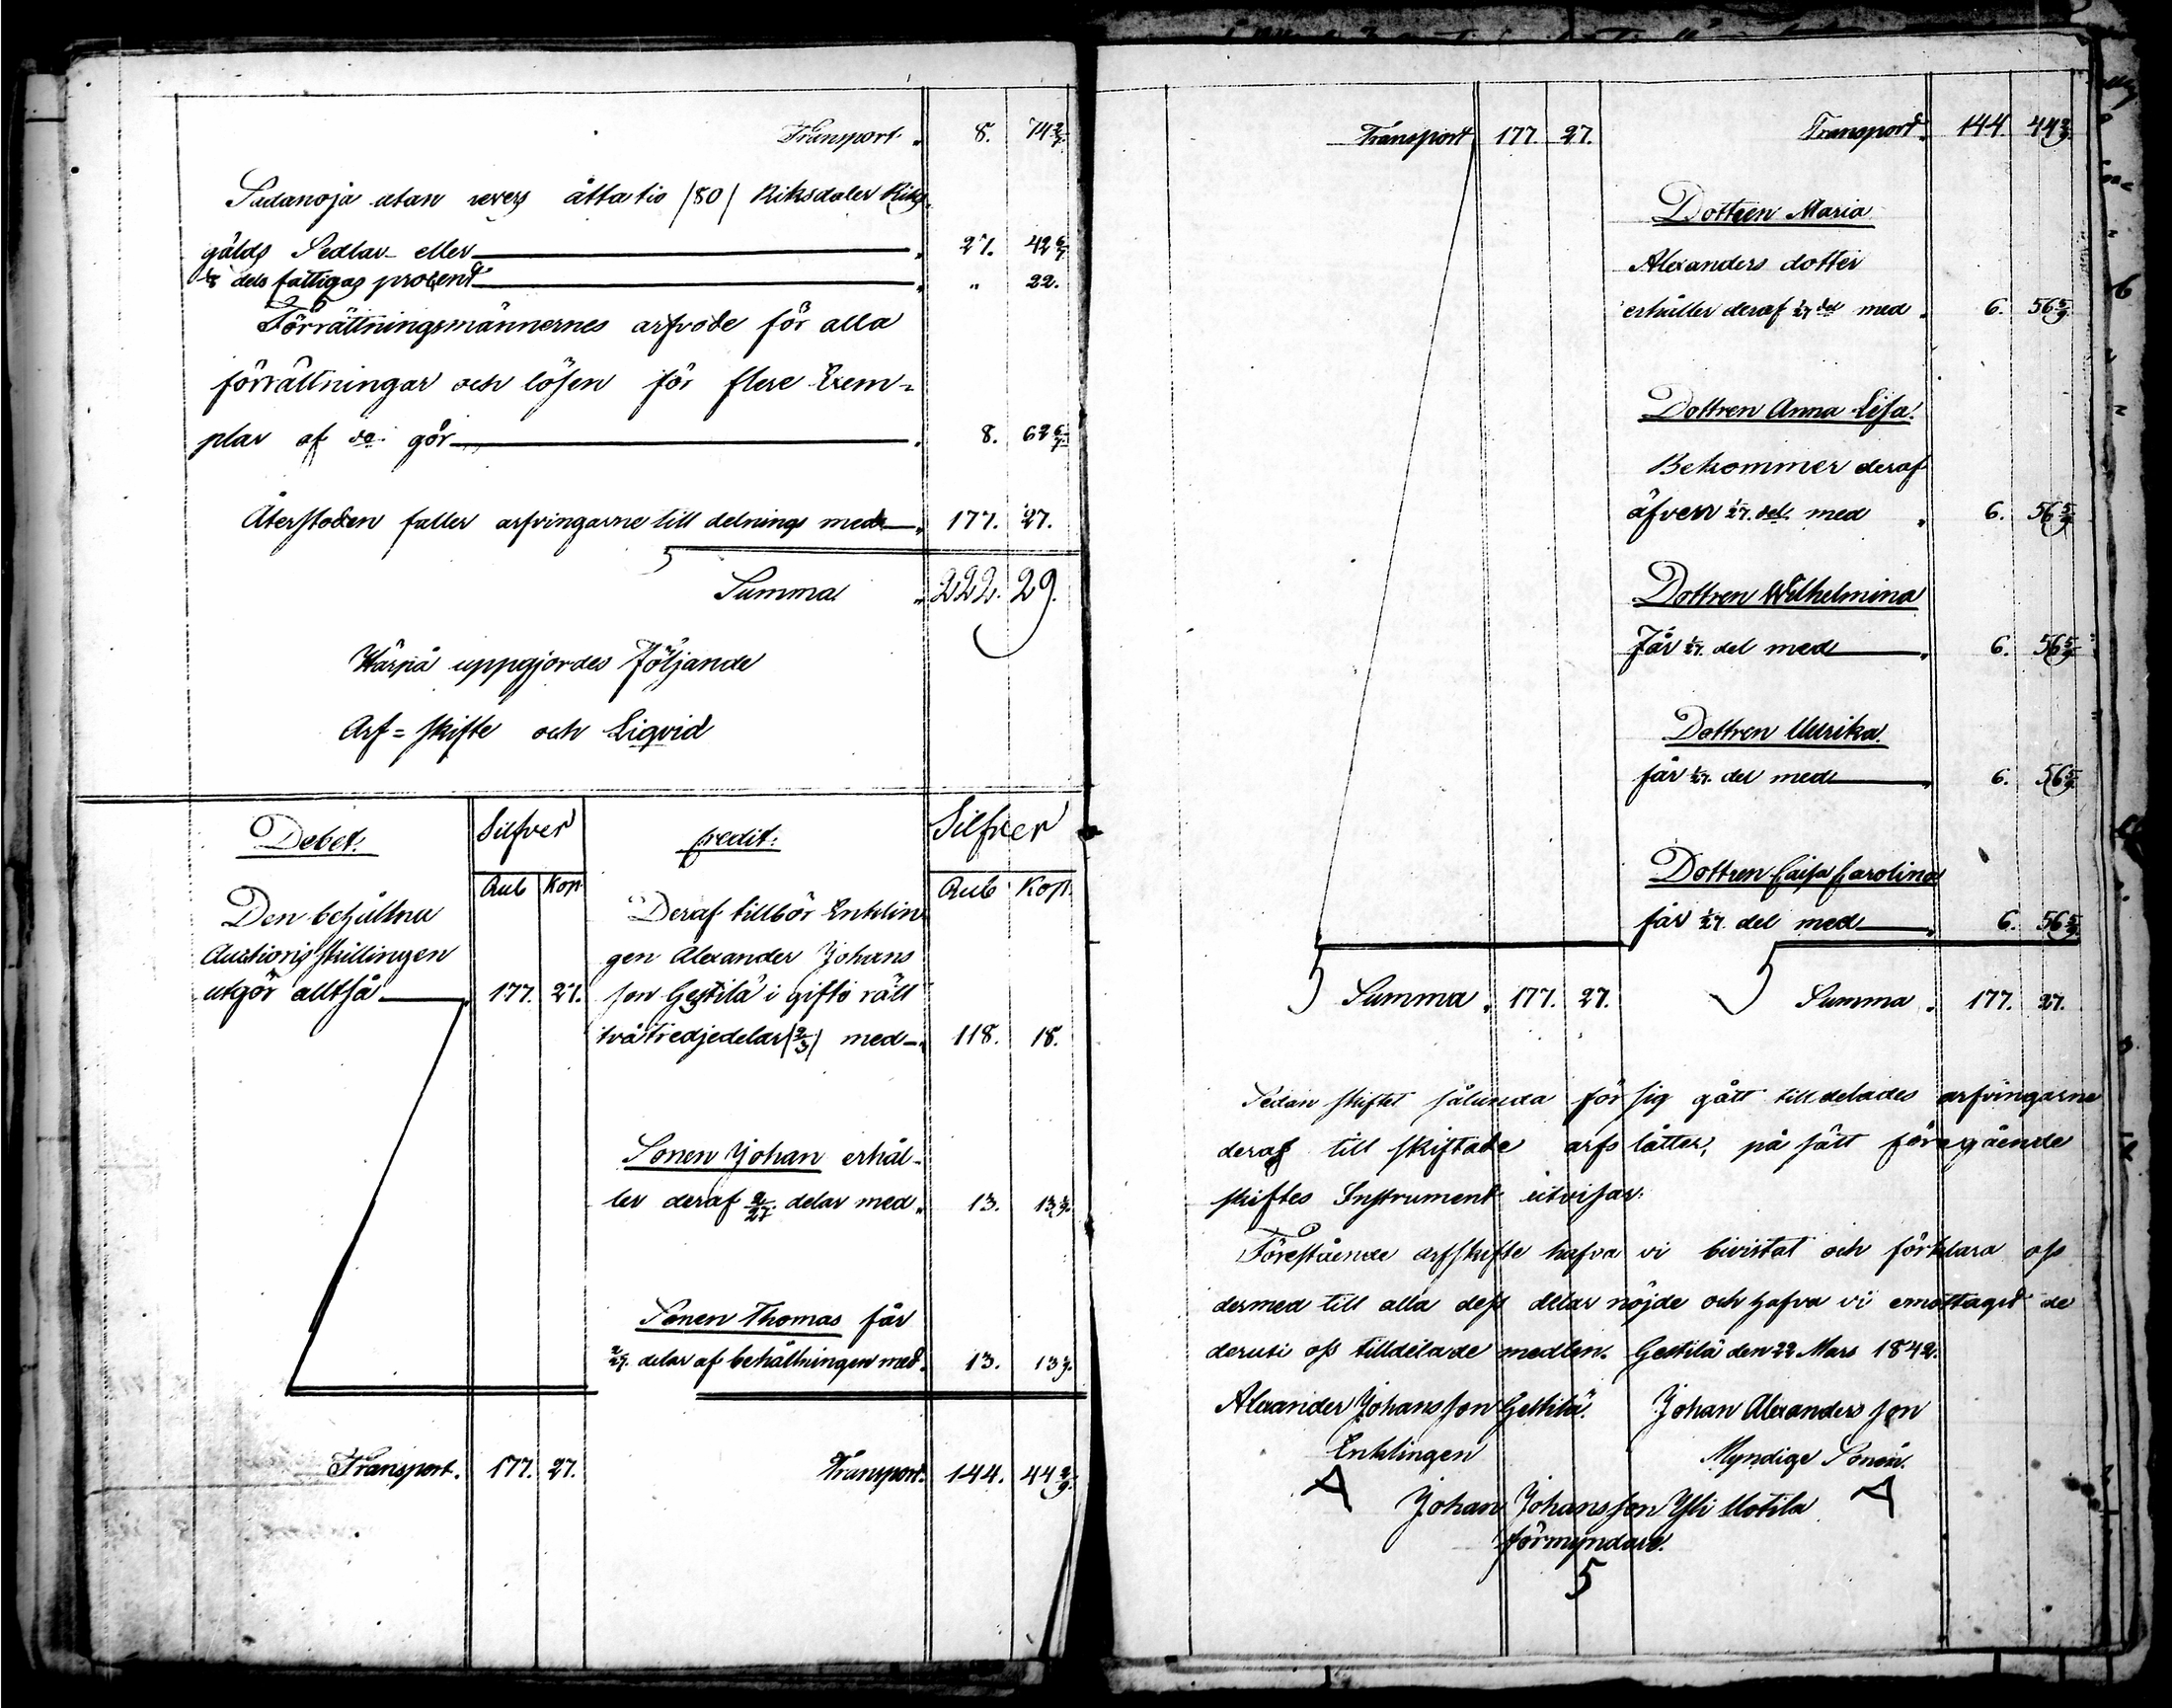 Transport. " 8. 74 2/7
Sadanoja utan revers åttatio /80/ Riksdaler Riks
gälds Sedlar eller " 27. 42 6/7
1/8 dels fattigas procent " " 22.
Förrättningsmännernes arfvode för alla
förrättningar och lösen för flere Exem=
plar af do. gör " 8. 62 6/7
Återstoden faller arfvingarne till delnings med " 177. 27.
Summa " 222. 29.
Härpå uppgjordes följande
Arf=skifte och Liqvid
Debet. Silfver
Rub Kop.
Den behållna
Auctions skillingen
utgör alltså " 177. 27.
Transport. 177. 27.
Credit: Silfver
Rub Kop.
Deraf tillbör Enklin
gen Alexander Johans
son Gestilä i gifto rätt
tvåtredjedelar /2/3/ med " 118. 18.
Sonen Johan erhål-
ler deraf 2/27. delar med " 13. 13 1/9.
Sonen Thomas får
2/27. delar af behållningen med " 13. 13 1/9.
Transport. 144. 44 2/9.
Transport 177. 27.
Summa " 177. 27.
Transport. 144. 44 2/9
Dottren Maria
Alexanders dotter
erhåller deraf 1/27 del med " 6. 56 5/9
Dottren Anna Lisa.
Bekommer deraf
äfven 1/27. del. med " 6. 56 5/9
Dottren Wilhelmina
Får 1/27. del med " 6. 56 5/9
Dottren Ullrika.
får 1/27. del med " 6. 56 5/9
Dottren Caisa Carolina
får 1/27. del med " 6. 56 5/9
Summa " 177. 27.
Sedan skiftet sålunda för sig gått tilldelades arfvingarne
deraf till skiftade arfs låtter, på sätt föregående
skiftes Instrument utvisar.
Förestående arfskifte hafva vi bivistat och förklara oss
dermed till alla dess delar nöjde och hafva vi emottagit de
deruti oss tilldelade medlen. Gestilä den 22 Mars 1842.
Alexander Johansson Gestilä. Johan Alexanders son
Enklingen Myndige Sonen.
A Johan Johansson Yli Uotila A
förmyndare.
5